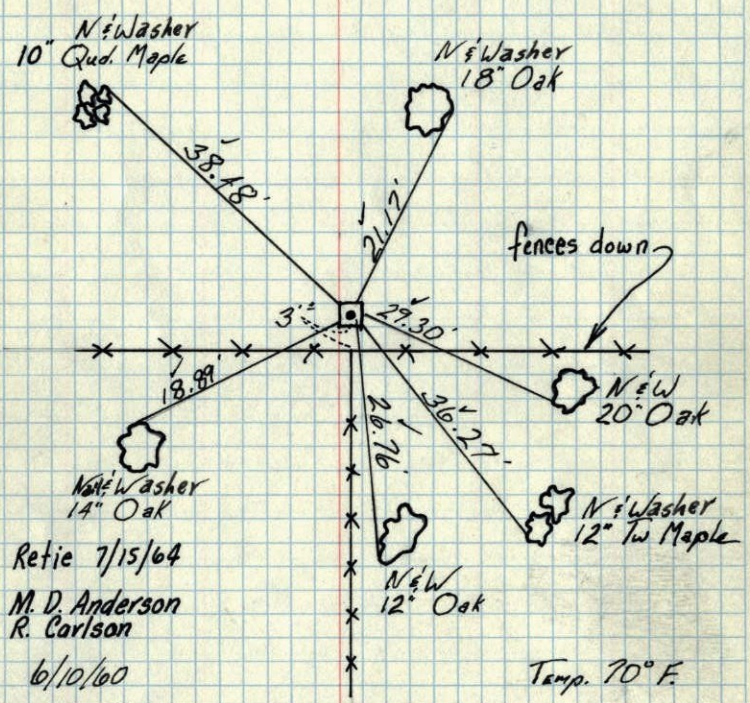 N & Washer
10" Qud. Maple
N & Washer
18" Oak
38.48'
21.12'
fences down
3'±
29.30'
18.89'
N & W
20" Oak
26.76'
36.27'
Nail & Washer
14" Oak
N & Washer
12" Tw Maple
N & W
12" Oak
Retie 7/15/64
M. D. Anderson
R. Carlson
6/10/60
Temp. 70° F.